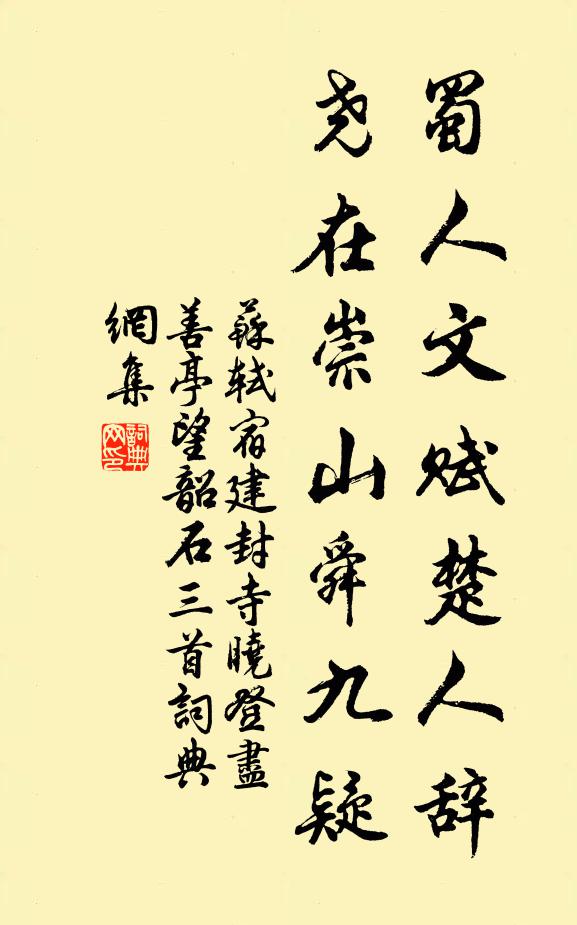 蜀人文赋楚人辞
尧在崇山舜九疑
蘇軾宿建封寺曉登盡
善亭望韶石三首詞典
網集
詞典
网印